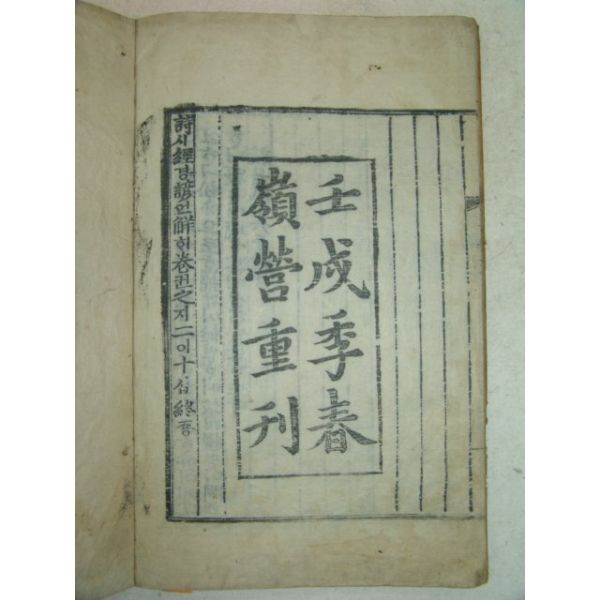 壬戌季春
嶺營重刊
詩시經경諺언解ᄒᆡ卷권之지二이十십終죵